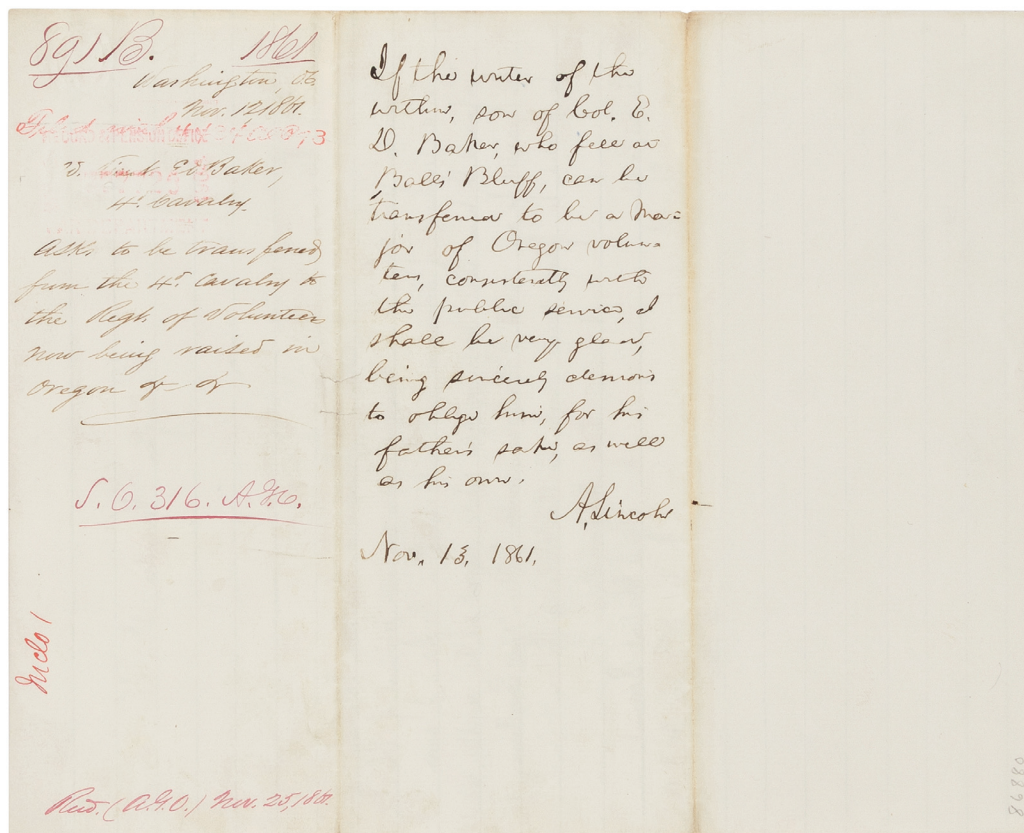 891 B. 1861
Washington, D.C.
Nov. 12 1861.
E D Baker,
4th Cavalry.
Asks to be transferred
from the 4th Cavalry to
the Regt. of Volunteers
now being raised in
Oregon & &
S. O. 316. A.G.O.
Inclo 1
Recd. (A.G.O.) Nov. 25, 1861.
If the writer of the
within, son of Col. E.
D. Baker, who fell at
Ball's Bluff, can be
transferred to be a Ma=
jor of Oregon volun-
teers, consistently with
the public service, I
shall be very glad,
being sincerely desirous
to oblige him, for his
father's sake, as well
as his own.
A. Lincoln
Nov. 13, 1861.
86880